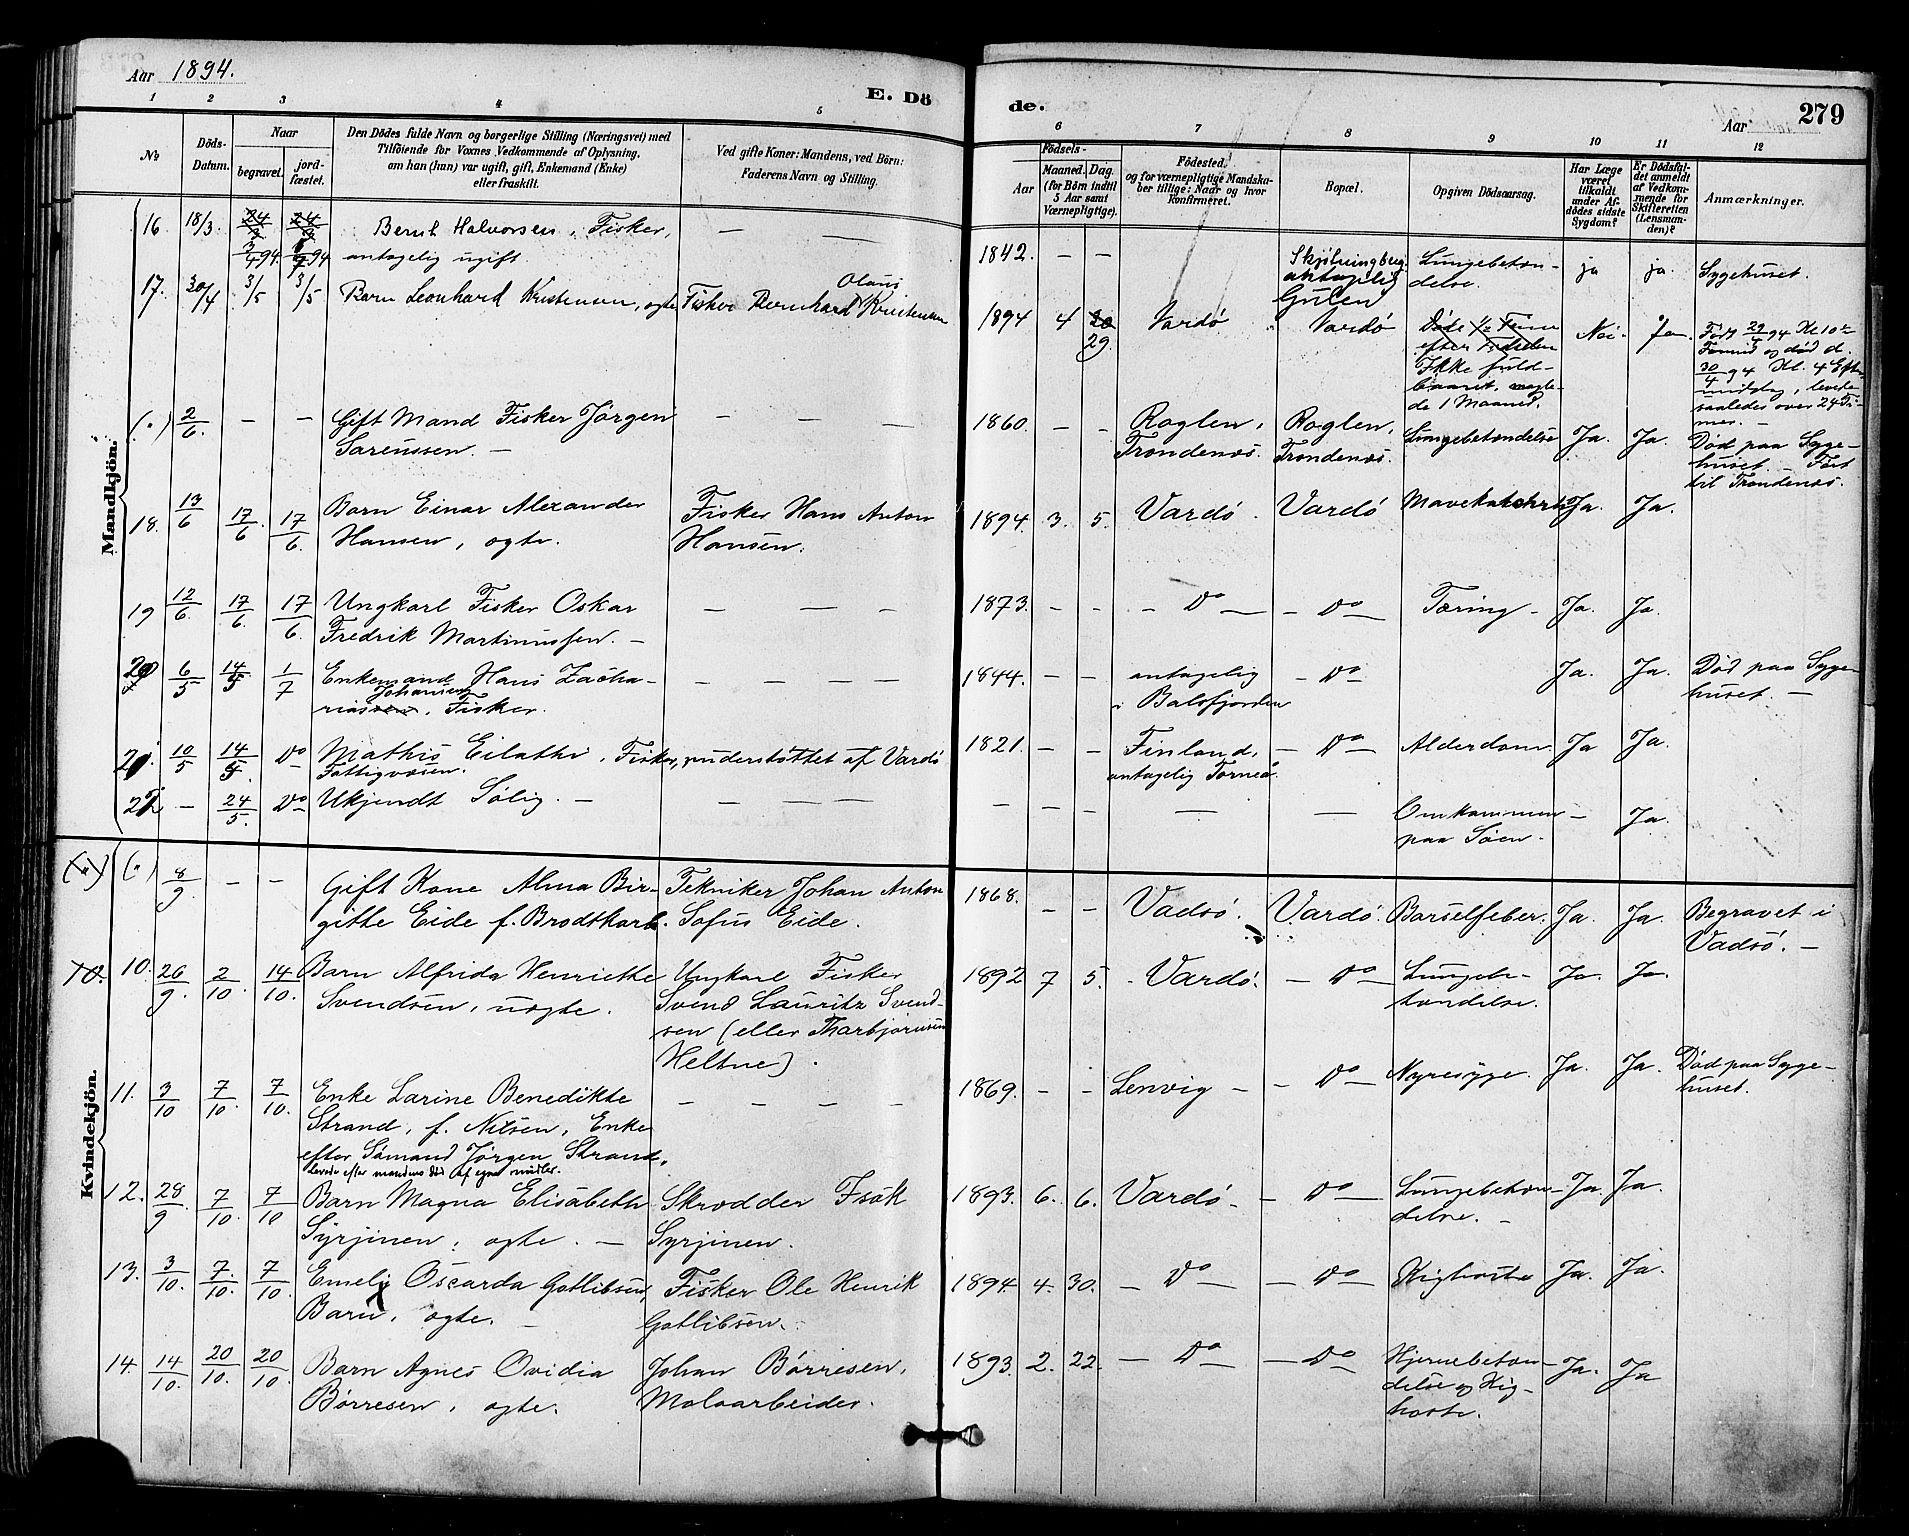 Aar 1894.
E. Dö
de.
Aar
279
1 2 3 4 5 6 7 8 9 10 11 12
No
Döds-Datum.
Naar
begravet.
jord-fæstet.
Den Dödes fulde Navn og borgerlige Stilling (Næringsvei) med
Tilföiende for Voxnes Vedkommende af Oplysning,
om han (hun) var ugift, gift, Enkemand (Enke)
eller fraskilt.
Ved gifte Koner: Mandens, ved Børn:
Faderens Navn og Stilling.
Födsels-
Aar
Maaned. Dag.
(for Börn indtil
5 Aar samt
Værnepligtige).
Födested,
og for værnepligtige Mandska-
ber tillige: Naar og hvor
konfirmeret.
Bopæl.
Opgiven Dödsaarsag.
Har Læge
været
tilkaldt
under Af-
dödes sidste
Sygdom?
Er Dödsfal-
det anmeldt
af Vedkom-
mende for
Skifteretten
(Lensman-
den)?
Anmærkninger.
Mandkjön.
16. 18/3 24/3 24/3 Bernt Halvorsen, Fisker, — —
3/4 94 3/4 94 antagelig ugift
1842. — — Skjötningberg antagelig Gulen Lungebeten-delse. ja ja. Sygehuset.
17. 30/4 3/5 3/5 Barn Leonhard Kristensen, ægte Fisker Bernhard Olaus Kristensen
1894 4 30 29. Vardö Vardö
Döde 1/2 Time efter Födselen
Ikke fuld-
baaret, magle-
de 1 Maaned.
Nei. Ja.
Født 29/4 94 Kl. 10
Formid og død d.
30/4 94 Kl. 4 Efter-
middag, levede
saaledes over 24 Ti-
mer. —
(") 2/6. — — Gift Mand Fisker Jørgen — —
Sørenssen. —
1860. — — Roglen, Trondenæs. Roglen, Trondenæs. Lungebetændelse Ja. Ja. Død paa Syge-
huset. — Ført
til Trondenæs.
18. 13/6 17/6. 17/6. Barn Einar Alexander Fisker Hans Anton
Hansen, ægte. Hansen.
1894. 3. 5. Vardö. Vardö Mavekatarrh Ja. Ja.
19 12/6. 17/6. 17/6. Ungkarl Fisker Oskar — — —
Fredrik Martinussen. —
1873. — — — Do — — Do Tæring — Ja. Ja.
20 6/5 14/5 1/7 Enkemand Hans Zacha- — — — —
riassen Johansen, Fisker.
1844. — — antagelig i Balsfjorden — Do Ja. Ja. Død paa Syge-
huset. —
21. 10/5 14/5. Do Mathis Eilathi, Fisker, understöttet af Vardö
Fattigvæsen.
1821. — — Finland, antagelig Torneå. — Do — Alderdom Ja Ja.
22 — 24/5. Do Ukjendt Sølig. — — — —
— — — — — Omkommen — Ja.
paa Søen.
Kvindekjön.
(") 8/9 — — Gift Kone Alma Bir- Tekniker Johan Anton
gitte Eide f. Brodtkorb. Sofus Eide.
1868. — — Vadsö. Vardö. Barselfeber. Ja. Ja. Begravet i
Vadsö. —
10. 10. 26/9. 2/10. 14/10. Barn Alfrida Henriette Ungkarl Fisker
Svendsen, uægte. Svend Lauritz Svend-
sen (eller Thorbjørnsen
Heltne).
1892 7 5. Vardö. — Do — Lungebe-
tændelse. Ja. Ja.
11. 3/10 7/10. 7/10. Enke Larine Benedikte — — — —
Strand, f. Nilsen, Enke
efter Sømand Jørgen Strand,
Levede efter mandens Død af egne midler.
1869. — — Lenvig — — Do — Nyresyge. Ja. Ja. Død paa Syge-
huset.
12. 28/9 7/10. 7/10 Barn Magna Elisabeth Skrædder Isak
Syrjinen, ægte. — Syrjinen.
1893. 6. 6. Vardö — — Do — Lungebetæn-
delse. — Ja. Ja.
13. 3/10. 7/10. 7/10 Emely Oscarda Gotlibsen, Fisker Ole Henrik
Barn, ægte. — Gotlibsen.
1894. 4. 30. — Do — — Do — Kighoste Ja. Ja.
14. 14/10. 20/10. 20/10 Barn Agnes Ovidia Johan Börresen,
Börresen, ægte. Moloarbeider.
1893. 2. 22. — Do — — Do — Hjernebetæn-
delse og Kig-
hoste. Ja. Ja